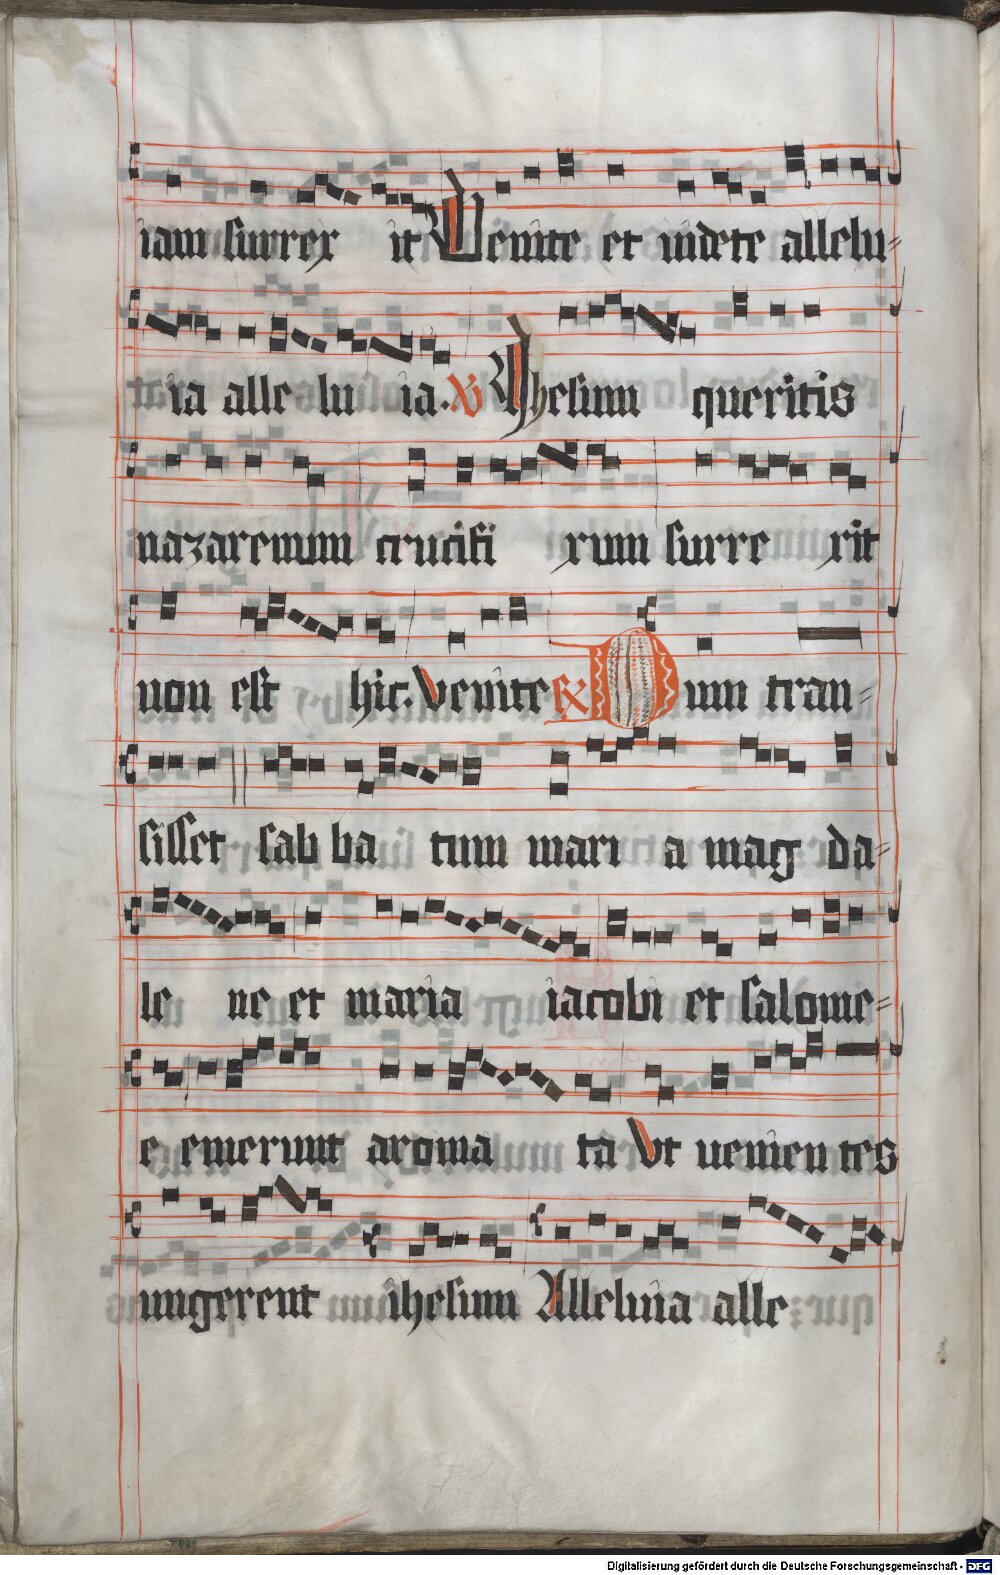 iam surrex it Venite et uidete allelu-
ia alle lu ia. V Jhesum queritis
nazarenum crucifi xum surre xit
non est hic. Venite R Dum tran-
sisset sab ba tum mari a mag da-
le ne et maria iacobi et salome-
e emerunt aroma ta Vt uenien tes
ungerent ihesum Alleluia alle
Digitalisierung gefördert durch die Deutsche Forschungsgemeinschaft - DFG